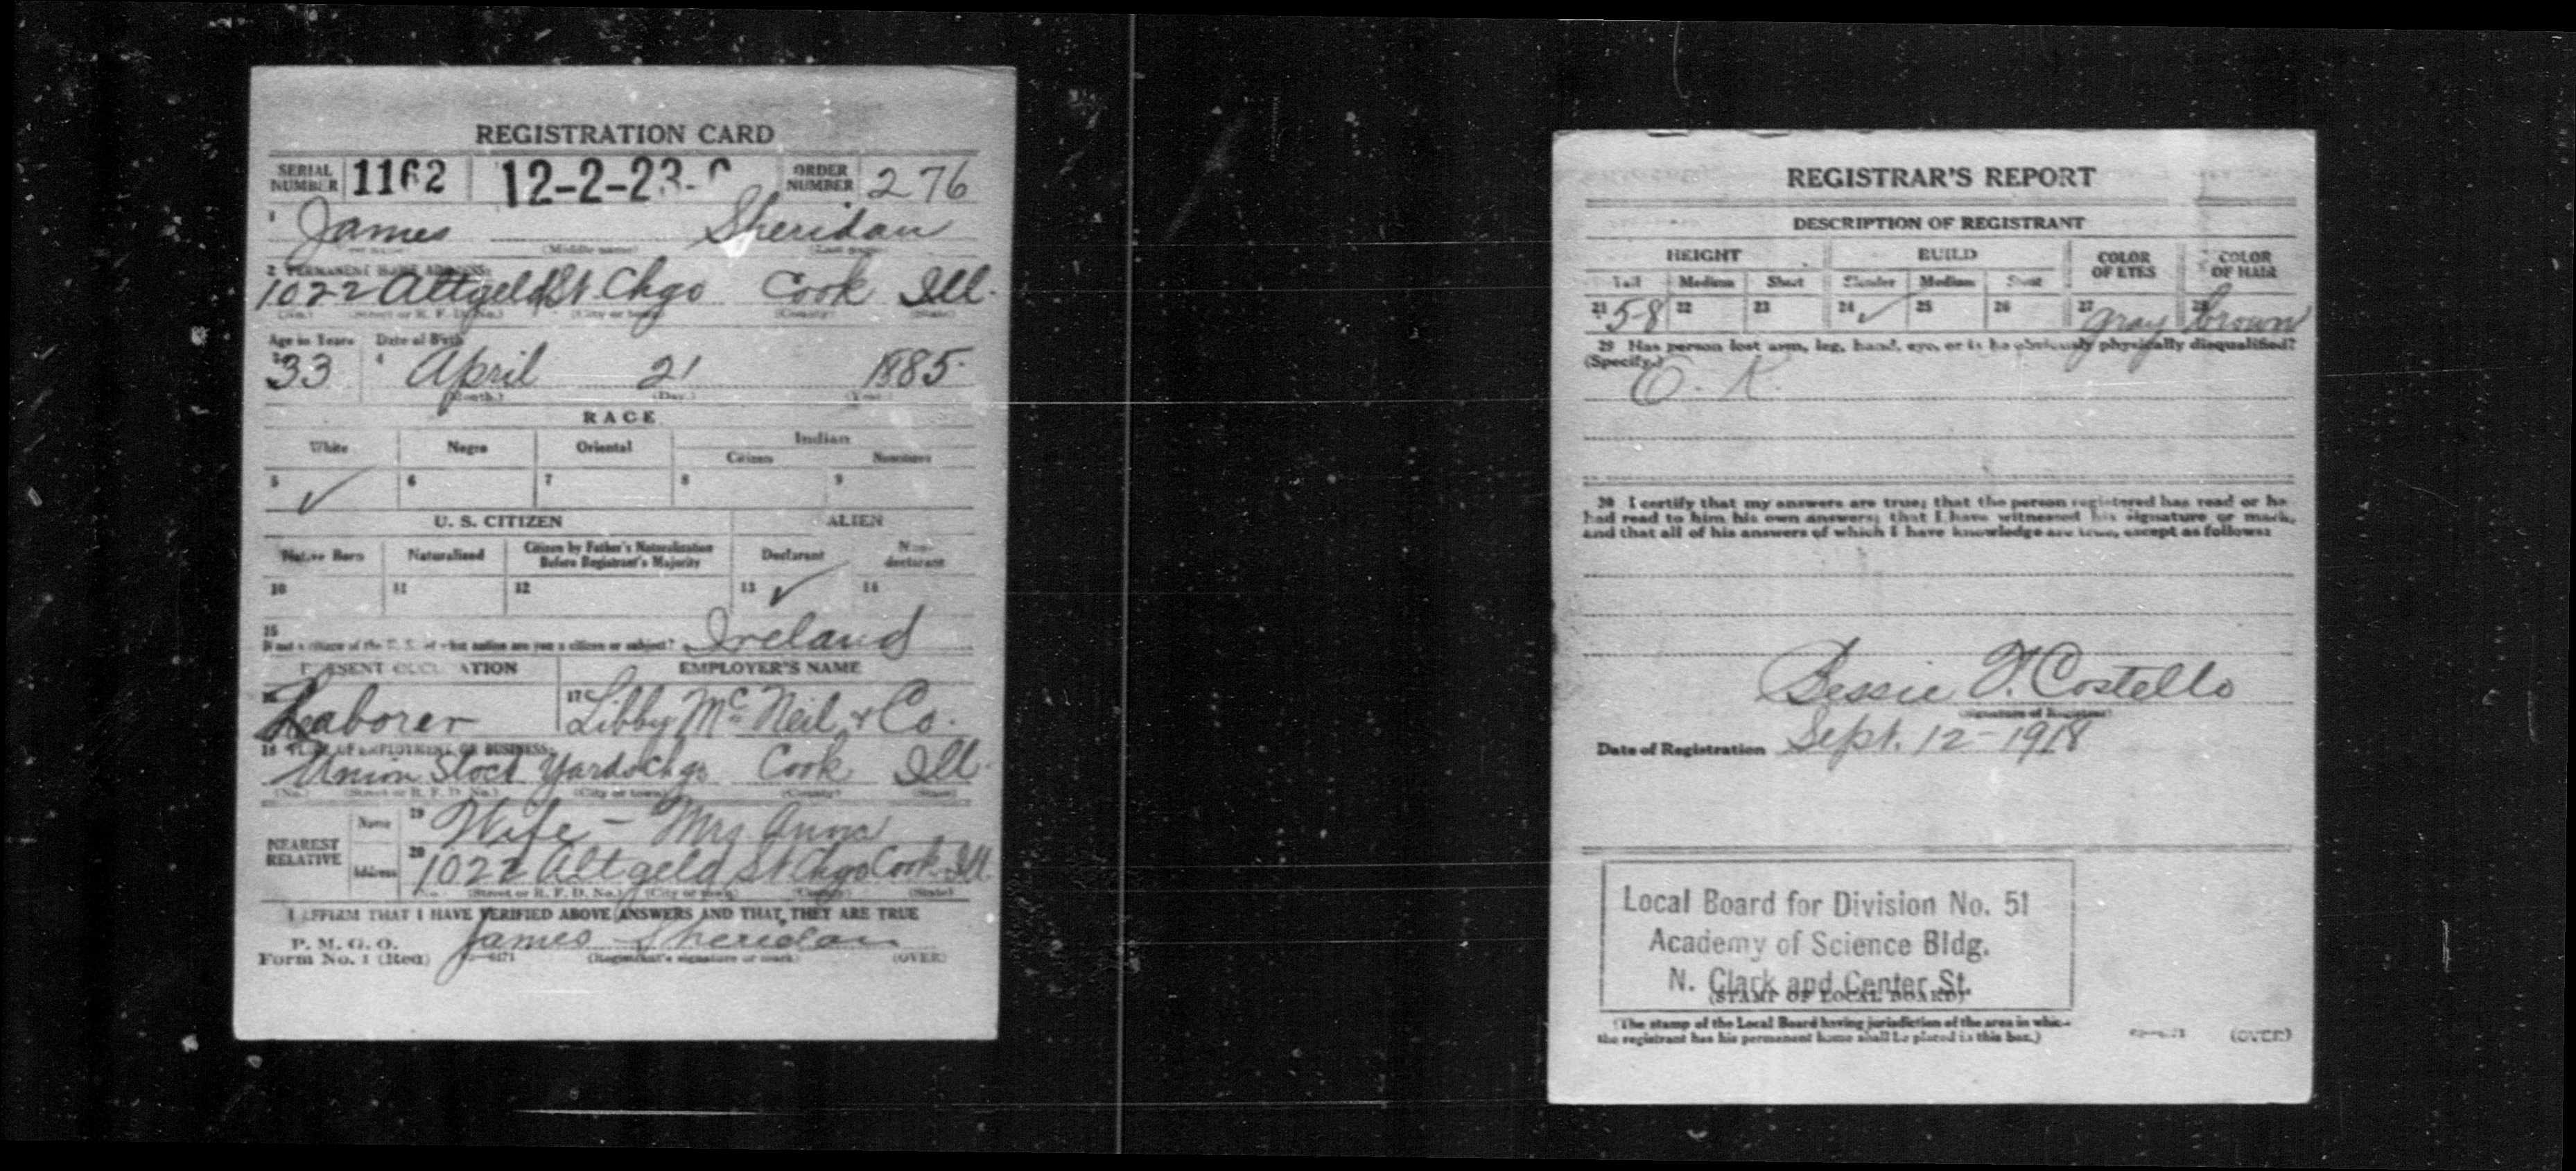 REGISTRATION CARD
SERIAL NUMBER 1162 12-2-23- ORDER NUMBER 276
1 James Sheridan
(Middle name) (Last name)
2 PERMANENT HOME ADDRESS:
1022 Altgeld St. Chgo Cook Ill.
(No.) (Street or R. F. D. No.) (City or town) (County) (State)
Age in Years Date of Birth
33 4 April 21 1885
(Month.) (Day.) (Year.)
RACE
White Negro Oriental Indian
Citizen Noncitizen
5 ✓ 6 7 8 9
U. S. CITIZEN ALIEN
Native Born Naturalized Citizen by Father's Naturalization Before Registrant's Majority Declarant Non-declarant
10 11 12 13 ✓ 14
15
If not a citizen of the U. S., of what nation are you a citizen or subject? Ireland
PRESENT OCCUPATION EMPLOYER'S NAME
16 Laborer 17 Libby McNeil & Co.
18 PLACE OF EMPLOYMENT OR BUSINESS:
Union Stock Yards Chgo Cook Ill.
(No.) (Street or R. F. D. No.) (City or town) (County) (State)
NEAREST RELATIVE
Name 19 Wife - Mrs Anna
Address 20 1022 Altgeld St Chgo Cook Ill
(No.) (Street or R. F. D. No.) (City or town) (County) (State)
I AFFIRM THAT I HAVE VERIFIED ABOVE ANSWERS AND THAT THEY ARE TRUE
P. M. G. O.
Form No. 1 (Red) James Sheridan
(Registrant's signature or mark) (OVER)
REGISTRAR'S REPORT
DESCRIPTION OF REGISTRANT
HEIGHT BUILD COLOR OF EYES COLOR OF HAIR
Tall Medium Short Slender Medium Stout
21 5-8 22 23 24 ✓ 25 26 27 gray 28 brown
29 Has person lost arm, leg, hand, eye, or is he obviously physically disqualified?
(Specify.) O. K.
30 I certify that my answers are true; that the person registered has read or has
had read to him his own answers; that I have witnessed his signature or mark,
and that all of his answers of which I have knowledge are true, except as follows:
Bessie V. Costello
(Signature of Registrar)
Date of Registration Sept. 12-1918
Local Board for Division No. 51
Academy of Science Bldg.
N. Clark and Center St.
(STAMP OF LOCAL BOARD)
(The stamp of the Local Board having jurisdiction of the area in which
the registrant has his permanent home shall be placed in this box.)
(OVER)